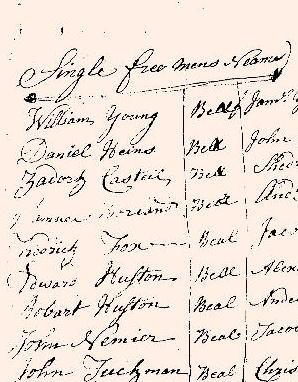 Single free mens Neame
William Young Bell Jams
Daniel Heins Bell John
Zadock Casteil Bell
Bell
Fredrick Fox Beal Jaco
Edward Huston Bell Alex
Robart Huston Beal Ande
John Nemier Beal Jacob
John Tuckman Beal Chris